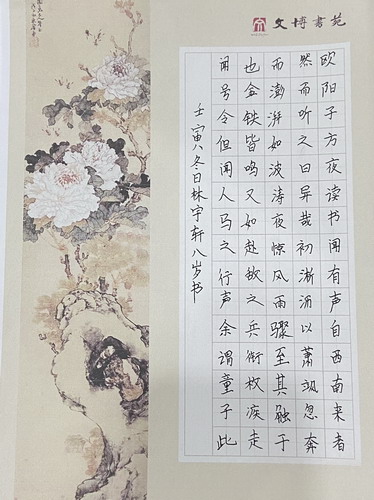 文博書苑
欧阳子方夜读书闻有声自西南来者
然而听之曰异哉初淅沥以萧飒忽奔
而澎湃如波涛夜惊风雨骤至其触于
也金铁皆鸣又如赴敌之兵衔枚疾走
闻号令但闻人马之行声余谓童子此
壬寅冬日林宇轩八岁书